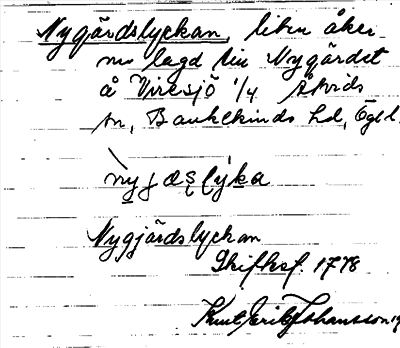 Nygärdslyckan, liten åker
nu lagd till Nygärdet
å Viresjö 1/4 Åtvids
sn, Bankekinds hd, Ögtl.
nyjæșļỳka
Nygjärdslyckan
Skifksf. 1778
Knut Erik Johansson 19